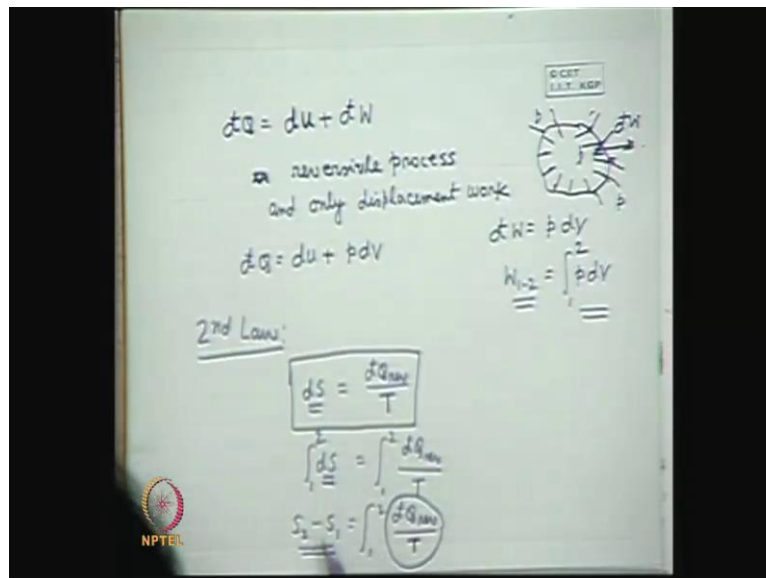 © CET
I.I.T. KGP
đQ = dU + đW
reversible process
and only displacement work
đW
p
p
đW = p dV
đQ = dU + pdV
W₁₋₂ = ∫₁² pdV
2nd Law:
dS = đQrev / T
∫₁² dS = ∫₁² đQrev / T
S₂ - S₁ = ∫₁² đQrev / T
NPTEL